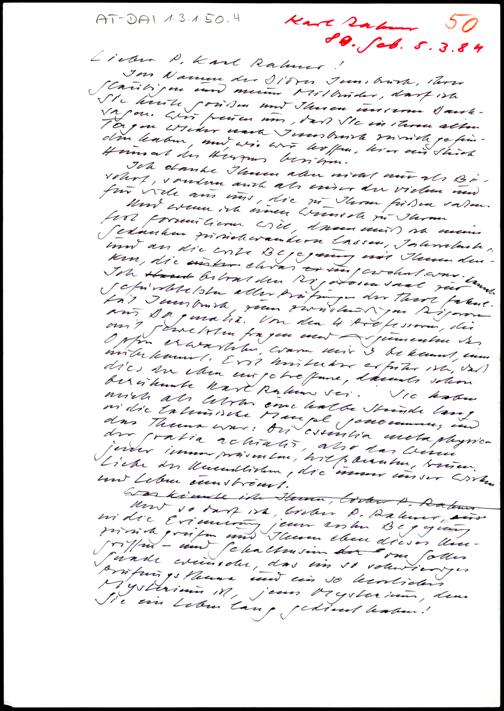 AT-DAI 1.3.1.50.4
Karl Rahner
80. Geb. 5.3.84
50
Lieber P. Karl Rahner!
Im Namen der Diözese Innsbruck, ihrer
Gläubigen und meiner Mitbrüder, darf ich
Sie heute grüßen und Ihnen unseren Dank
sagen. Wir freuen uns, daß Sie in Ihren alten
Tagen wieder nach Innsbruck zurückgefun-
den haben, und, wie wir hoffen, hier ein Stück
Heimat des Herzens besitzen.
Ich danke Ihnen aber nicht nur als Bi-
schof, sondern auch als einer der vielen und
für viele aus uns, die zu Ihren Füßen saßen.
Und wenn ich einen Wunsch zu Ihrem
Fest formulieren will, dann muß ich meine
Gedanken zurückwandern lassen, Jahrzehnte,
und an die erste Begegnung mit Ihnen den-
ken, die etwas ungewohnt war.
Ich betrat den Rigorosensaal zur
gefürchtetsten aller Prüfungen der Theol. Fakul-
tät Innsbruck, zum Rigorosum
aus Dogmatik. Von den 4 Professoren, die
mit gewetzten Fragen und Argumenten das
Opfer erwarteten, waren mir 3 bekannt, einer
unbekannt. Erst hinterher erfuhr ich, daß
dies der eben eingetroffene, damals schon
berühmte Karl Rahner sei. Sie haben
mich als letzter eine halbe Stunde lang
in die lateinische Mangel genommen, und
das Thema war: De essentia metaphysica
der gratia actualis, also das Wesen
jener Liebe des Unendlichen, die unser Wirken
und Leben umströmt.
Was könnte ich Ihnen, lieber P. Rahner
Und so darf ich, lieber P. Rahner,
in die Erinnerung jener ersten Begegnung
zurückgreifen und Ihnen eben dieses
und von Gottes
Gnade wünschen, das ein so schwieriges
Prüfungsthema und ein so herrliches
Mysterium ist, jenes Mysterium, dem
Sie ein Leben lang gedient haben!